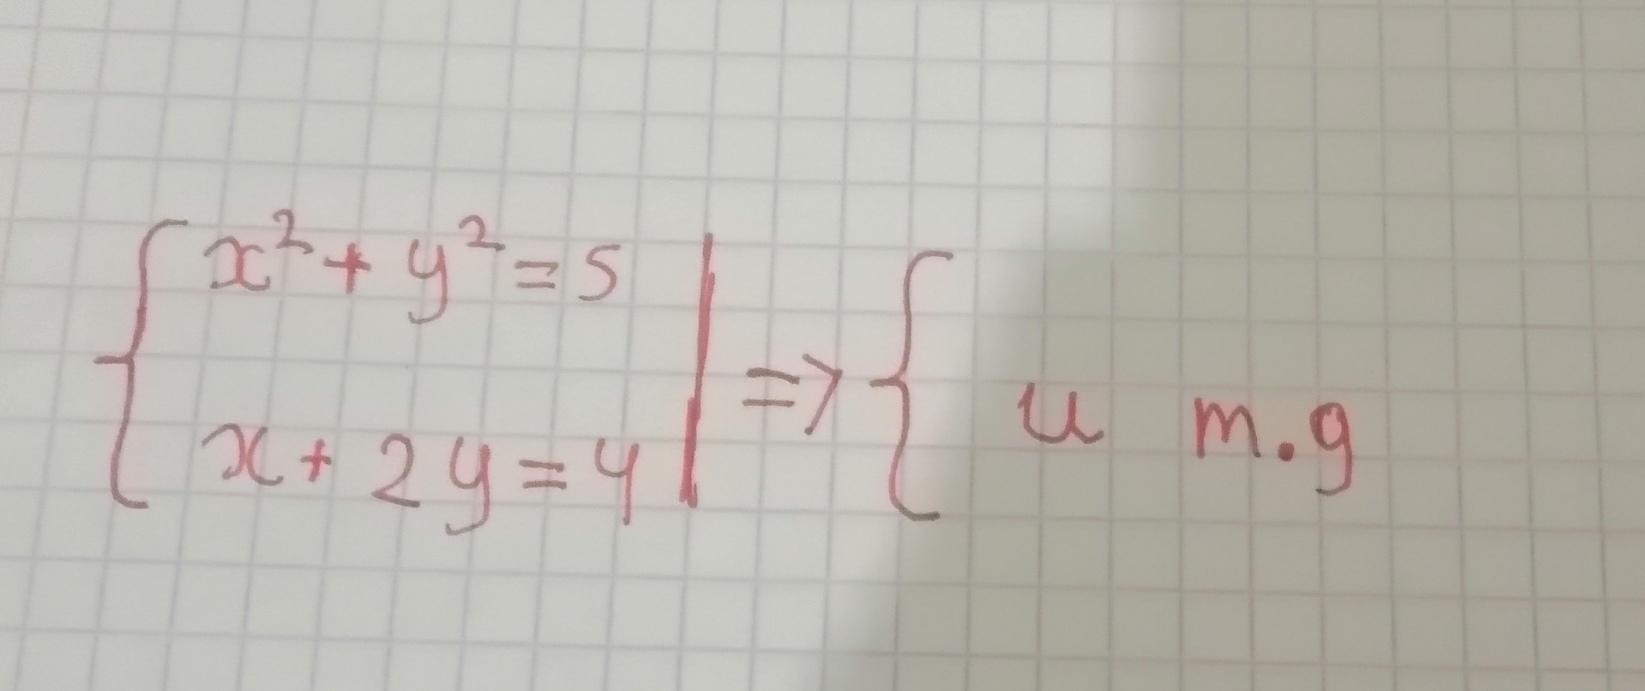 { x² + y² = 5
x + 2y = 4 | => { u m.g